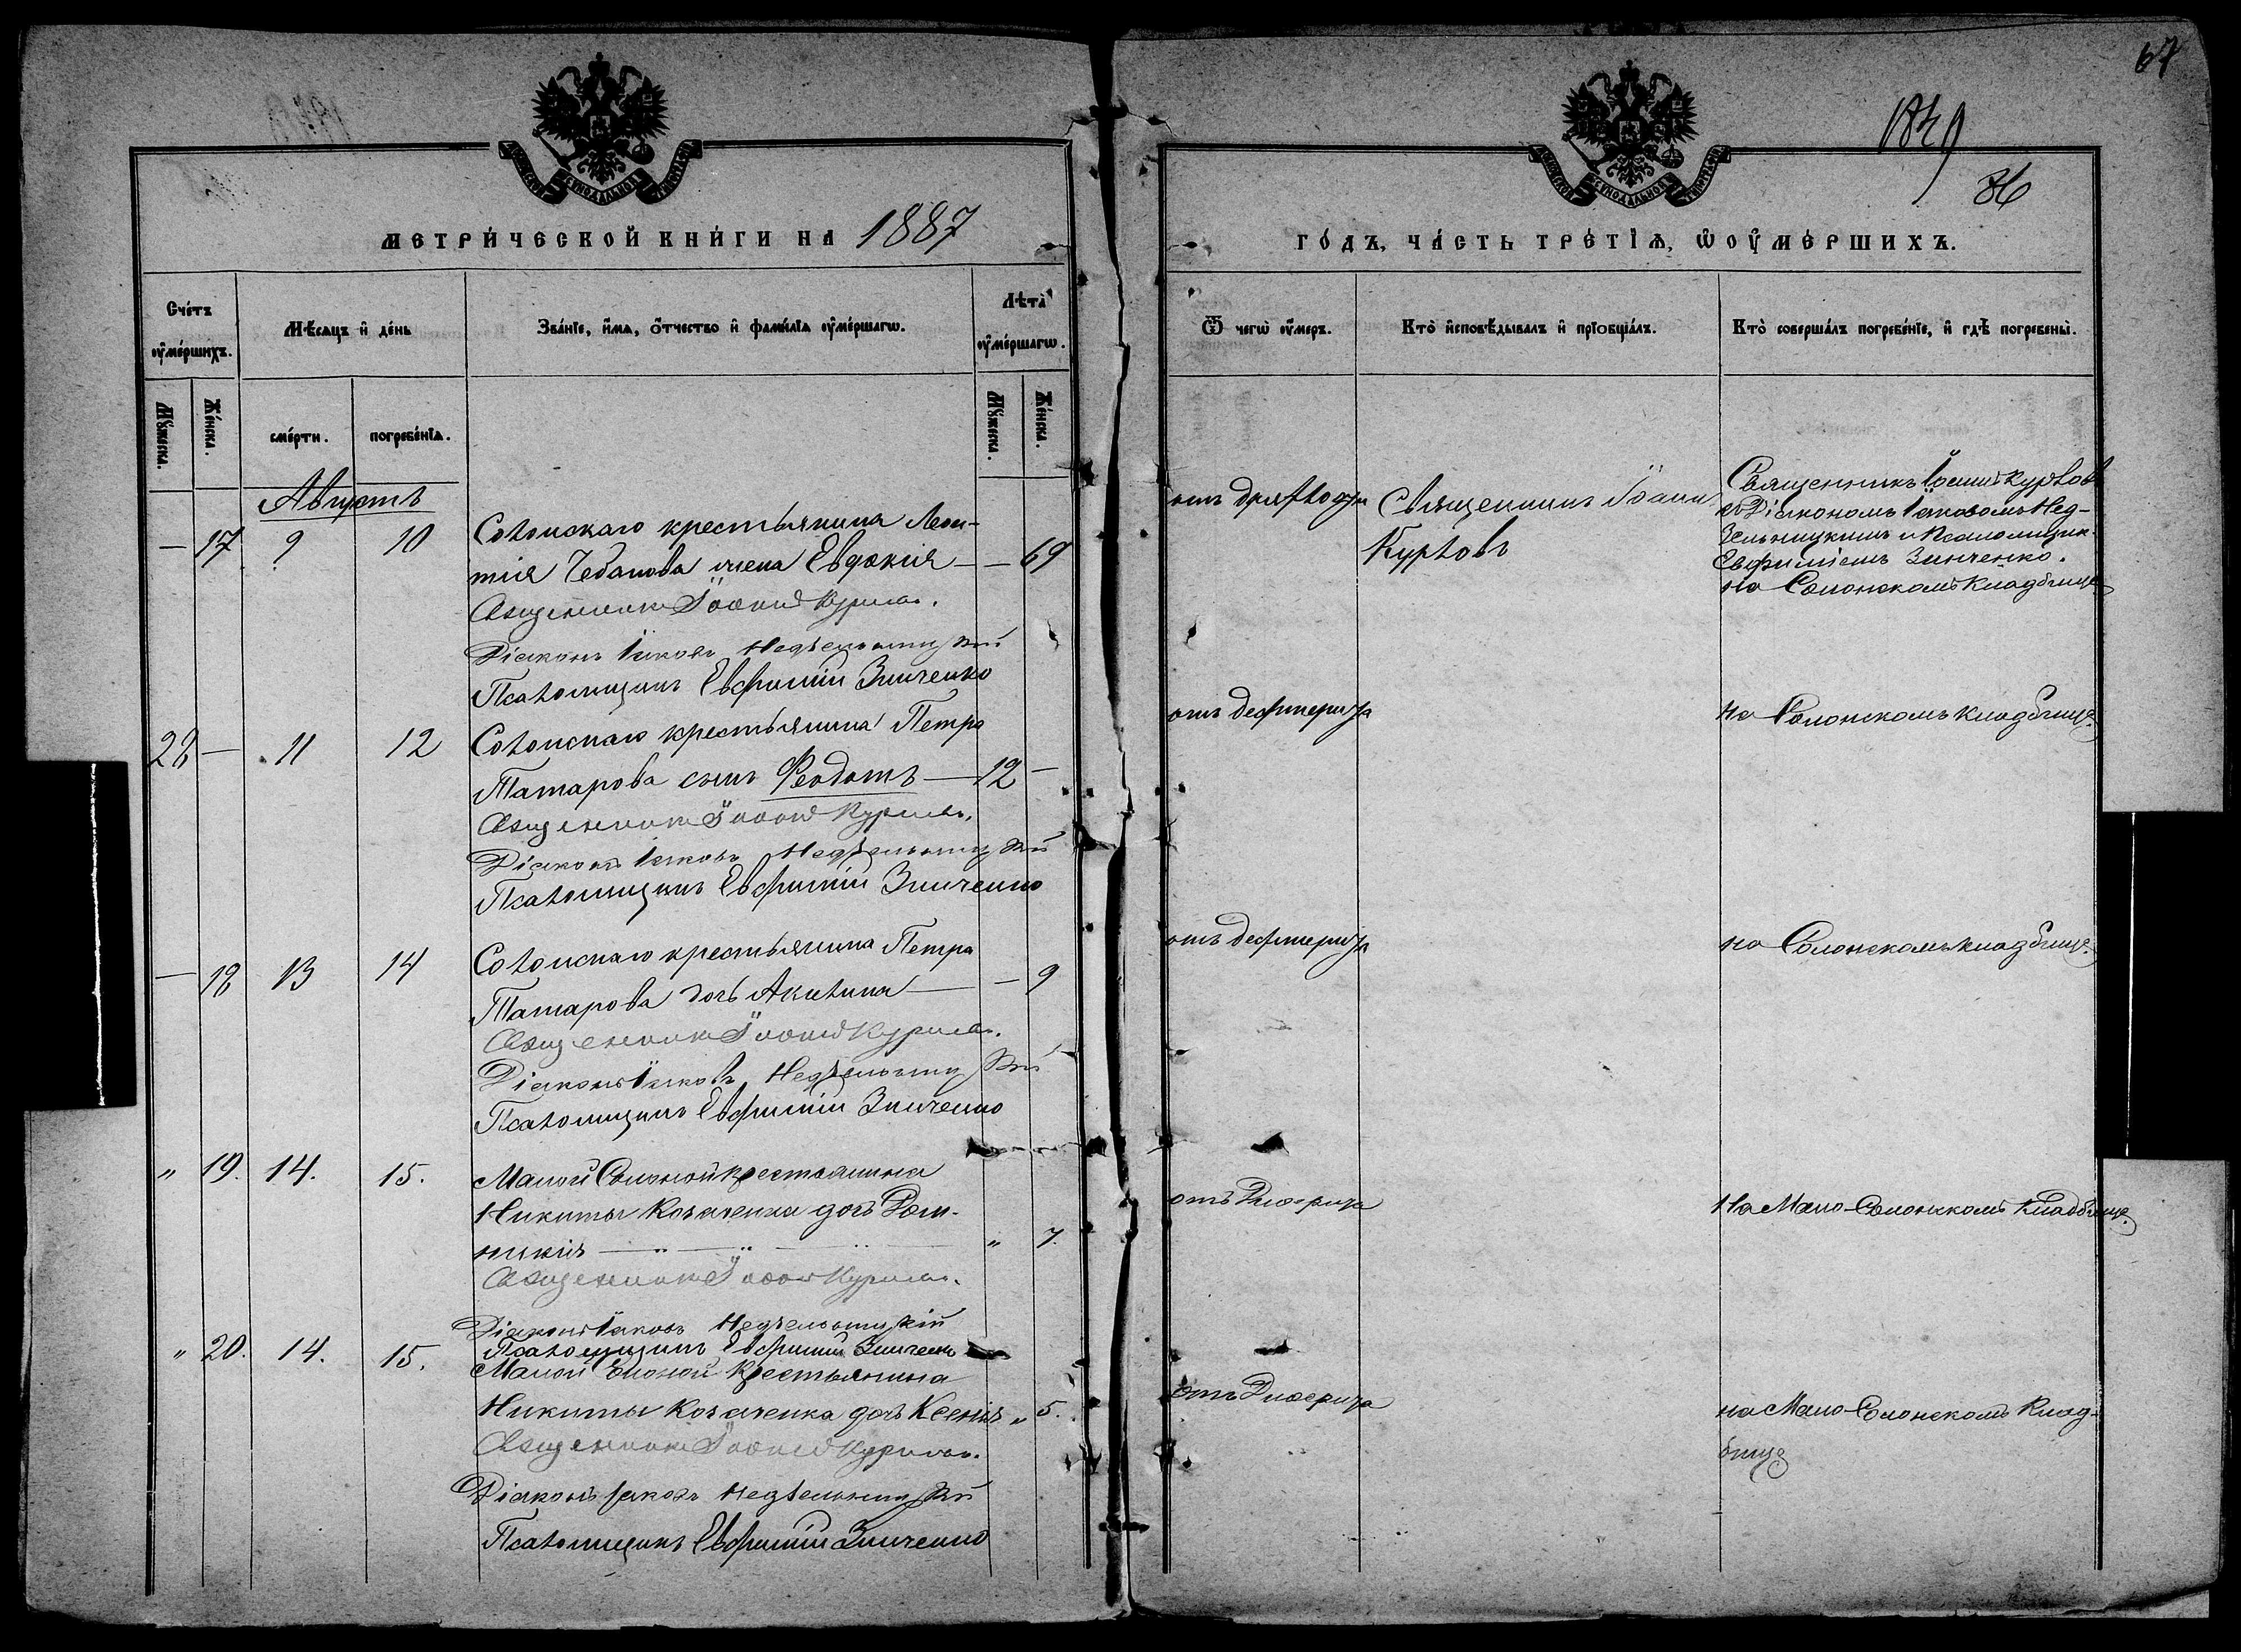 67
1839
36
МЕТРИ́ЧЕСКОЙ КНИ́ГИ НА 1887
ГО́ДЪ, ЧА́СТЬ ТРЕ́ТІѦ, Ѡ ОУ҆МЕ́РШИХЪ.
Сче́тъ оу҆ме́ршихъ.
Мѣ́сяцъ и҆ де́нь
Зва́нїе, и҆́мя, ѻ҆́тчество и҆ фами́лїя оу҆ме́ршагѡ.
Лѣта̀ оу҆ме́ршагѡ.
Ѿ чегѡ̀ оу҆́меръ.
Кто̀ и҆сповѣ́дывалъ и҆ прїобща́лъ.
Кто̀ соверша́лъ погребе́нїе, и҆ гдѣ̀ погребены̀.
Мꙋ́жеска.
Же́нска.
сме́рти.
погребе́нїя.
Мꙋ́жеска.
Же́нска.
Августъ
— 17 9 10
Солонскаго крестьянина Леон-
тия Чебанова жена Евдокия — — 69
Священникъ Іоаннъ
Діаконъ Іаковъ Недзельницкій
Псаломщикъ Евфимій Зинченко
отъ
Священникъ Іоаннъ
Священникъ Іоаннъ
съ Діакономъ Іаковомъ Нед-
зельницкимъ и Псаломщик.
Евфиміемъ Зинченко.
на Солонскомъ кладбище
28 — 11 12
Солонскаго крестьянина Петра
Татарова сынъ Феодотъ — 12 —
Священникъ Іоаннъ
Діаконъ Іаковъ Недзельницкій
Псаломщикъ Евфимій Зинченко
отъ дефтерита
на Солонскомъ кладбище.
— 18 13 14
Солонскаго крестьянина Петра
Татарова дочь Акилина — — 9
Священникъ Іоаннъ
Діаконъ Іаковъ Недзельницкій
Псаломщикъ Евфимій Зинченко
отъ дефтерита
на Солонскомъ кладбище.
" 19. 14. 15.
Малой Солоной крестьянина
Никиты Козаченка дочь Дом-
никія " 7.
Священникъ Іоаннъ
Діаконъ Іаковъ Недзельницкій
Псаломщикъ Евфимій Зинченко
отъ
На Мало-Солонскомъ кладбище.
" 20. 14. 15.
Малой Солоной крестьянина
Никиты Козаченка дочь Ксенія " 5.
Священникъ Іоаннъ
Діаконъ Іаковъ Недзельницкій
Псаломщикъ Евфимій Зинченко
отъ
на Мало-Солонскомъ клад-
бище